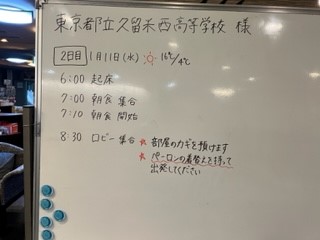 東京都立久留米西高等学校 様
2日目 1月11日(水) 16℃/4℃
6:00 起床
7:00 朝食 集合
7:10 朝食 開始
8:30 ロビー集合 ※ 部屋のカギを預けます
※ ペーロンの着替えを持って
出発してください